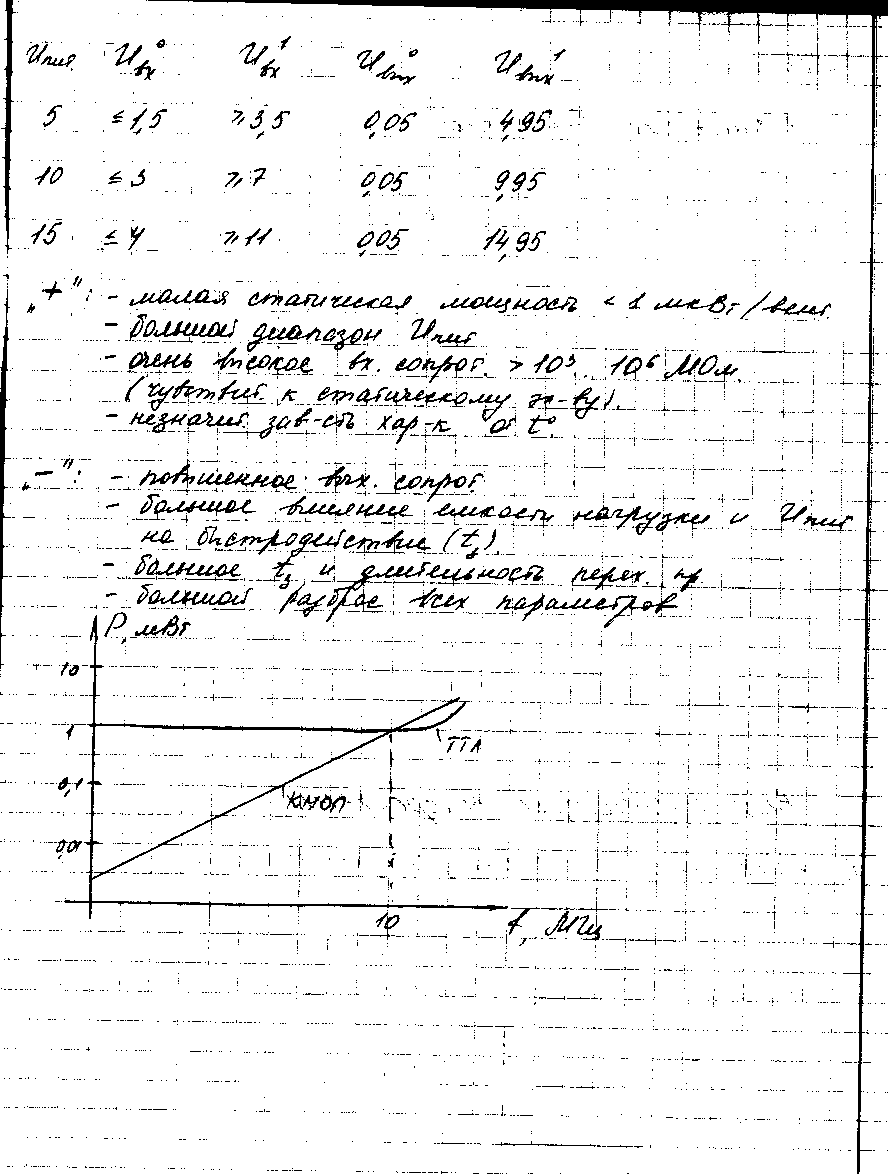 Uпит. U⁰вх U¹вх U⁰вых U¹вых
5 ≤1,5 ≥3,5 0,05 4,95
10 ≤3 ≥7 0,05 9,95
15 ≤4 ≥11 0,05 14,95
„+“: - малая статическая мощность < 1 мкВт/вент
- большой диапазон Uпит
- очень высокое вх. сопрот. > 10³..10⁶ МОм.
(чувствит к статическому эл-ву).
- незначит. зав-сть хар-к от t°.
„−“: - повышенное вых. сопрот.
- большое влияние емкости нагрузки и Uпит
на быстродействие (tз).
- большое tз и длительность перех. пр
- большой разброс всех параметров
P, мВт
10
1
ТТЛ
0,1
КМОП
0,01
10 f, МГц